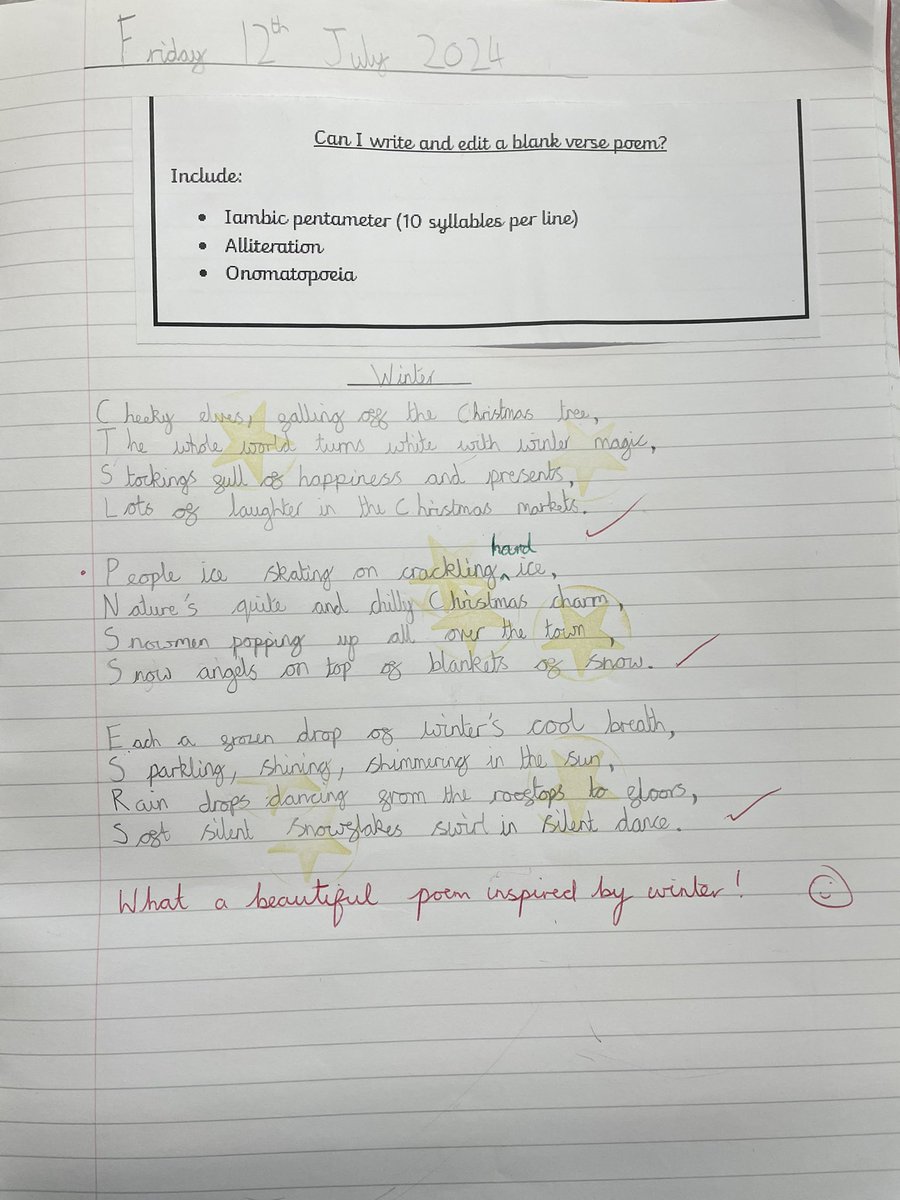 Friday 12th July 2024
Can I write and edit a blank verse poem?
Include:
• Iambic pentameter (10 syllables per line)
• Alliteration
• Onomatopoeia
Winter
Cheeky elves, falling off the Christmas tree,
The whole world turns white with winter magic,
Stockings full of happiness and presents,
Lots of laughter in the Christmas markets.
hard
People ice skating on crackling ^ ice,
Nature's quite and chilly Christmas charm,
Snowmen popping up all over the town,
Snow angels on top of blankets of snow.
Each a frozen drop of winter's cool breath,
Sparkling, shining, shimmering in the sun,
Rain drops dancing from the rooftops to floors,
Soft silent snowflakes swirl in silent dance.
What a beautiful poem inspired by winter!